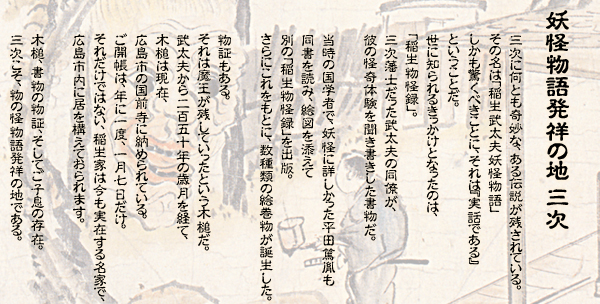 妖怪物語発祥の地 三次
三次に何とも奇妙な、ある伝説が残されている。
その名は「稲生武太夫妖怪物語」
しかも驚くべきことに、それは『実話である』
ということだ。
世に知られるきっかけとなったのは、
「稲生物怪録」。
三次藩士だった武太夫の同僚が、
彼の怪奇体験を聞き書きした書物だ。
当時の国学者で、妖怪に詳しかった平田篤胤も
同書を読み、絵図を添えて
別の「稲生物怪録」を出版。
さらにこれをもとに、数種類の絵巻物が誕生した。
物証もある。
それは魔王が残していったという木槌だ。
武太夫から二百五十年の歳月を経て、
木槌は現在、
広島市の国前寺に納められている。
ご開帳は、年に一度、一月七日だけ。
それだけではない、稲生家は今も実在する名家で、
広島市内に居を構えておられます。
木槌、書物の物証、そしてご子息の存在。
三次こそ、物の怪物語発祥の地である。